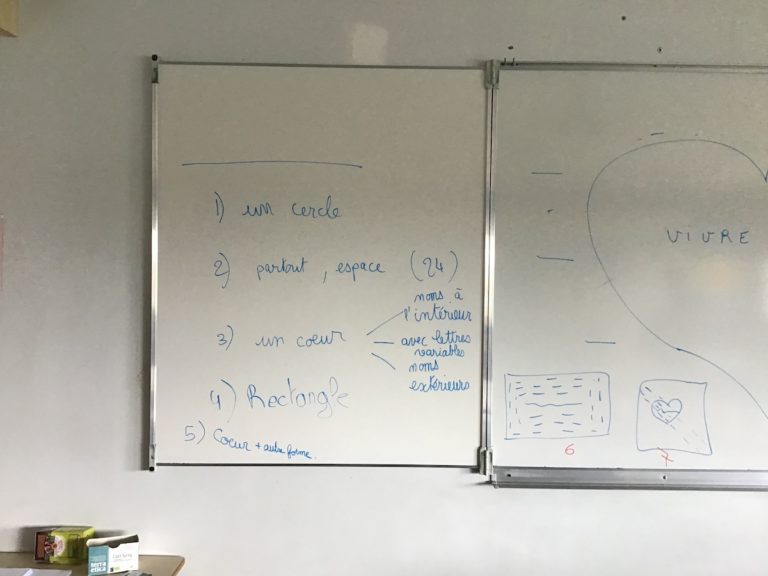 1) un cercle
2) partout, espace (24)
3) un coeur
noms à
l'intérieur
avec lettres
variables
noms
extérieurs
4) Rectangle
5) Coeur + autre forme.
VIVRE
6
7
terra
etica